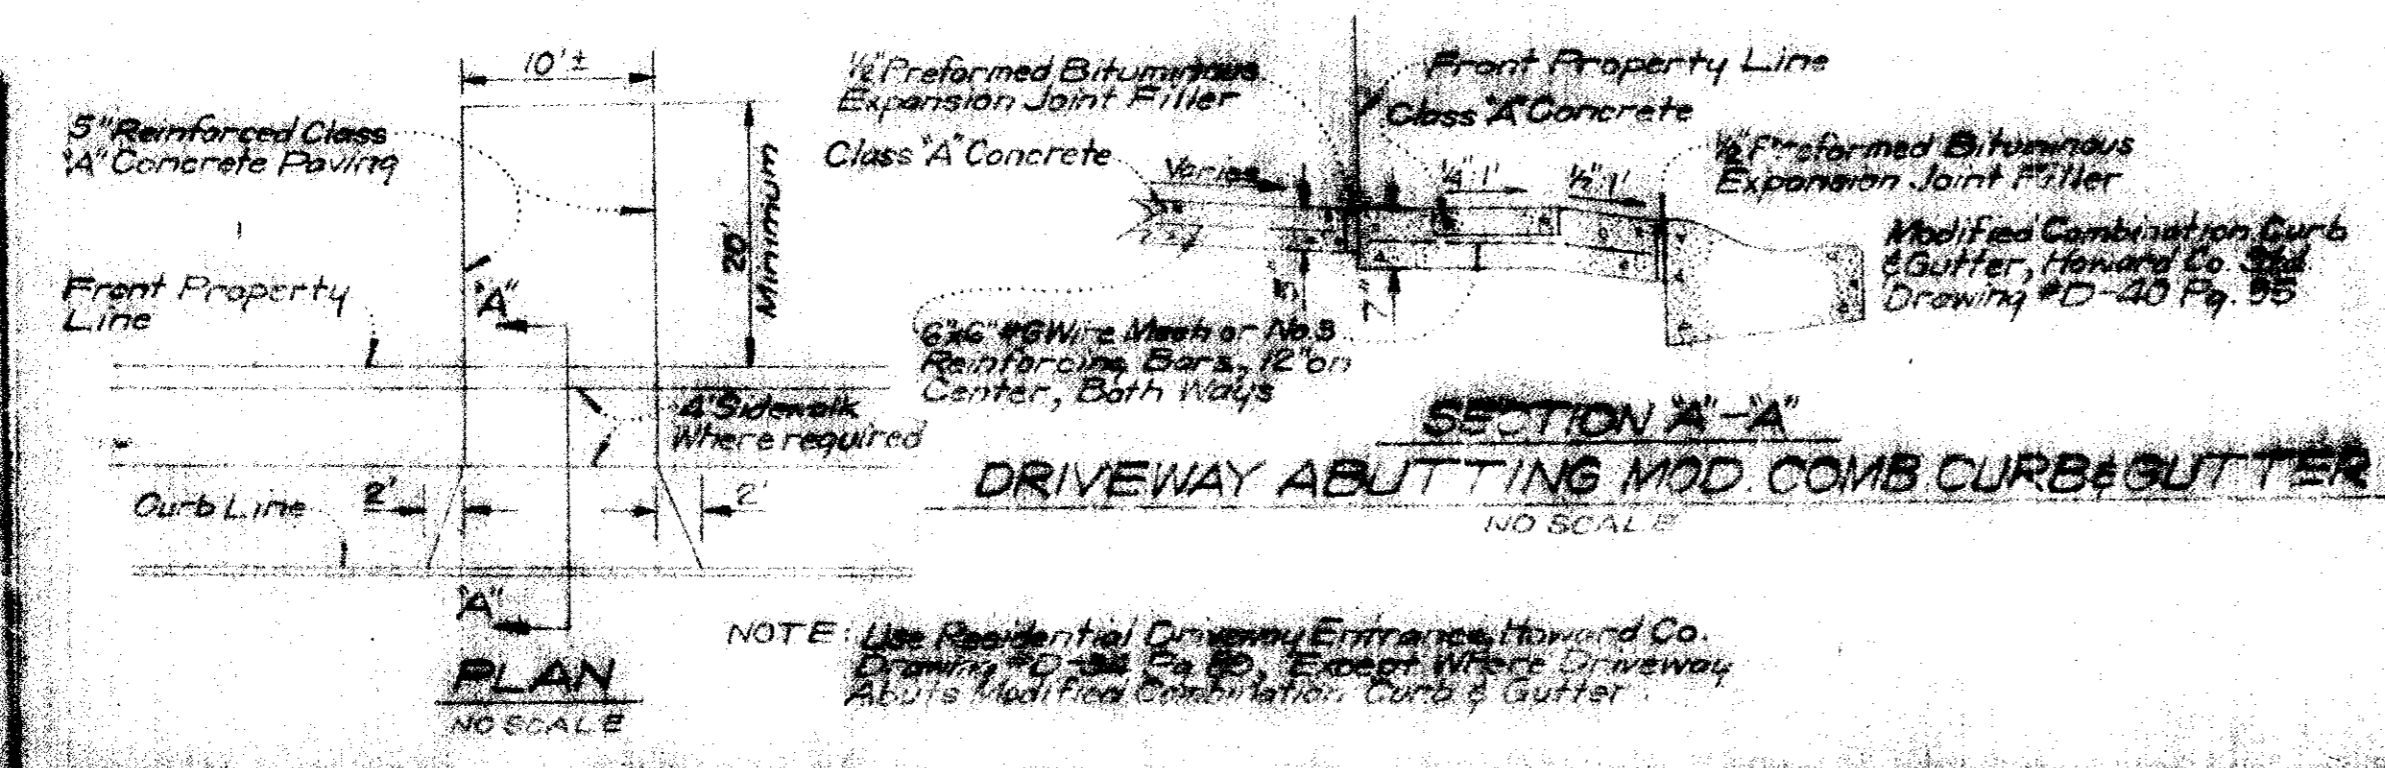 10'±
5" Reinforced Class
"A" Concrete Paving
Front Property
Line
"A"
20'
Minimum
4' Sidewalk
Where required
Curb Line
2'
2'
"A"
PLAN
NO SCALE
½" Preformed Bituminous
Expansion Joint Filler
Class "A" Concrete
Varies
Front Property Line
Class "A" Concrete
¼" 1'
½" 1'
½" Preformed Bituminous
Expansion Joint Filler
Modified Combination Curb
& Gutter, Howard Co. Std.
Drawing #D-40 Pg. 95
5"
7"
6"x6" #6 Wire Mesh or No.3
Reinforcing Bars, 12" on
Center, Both Ways
SECTION "A"-"A"
DRIVEWAY ABUTTING MOD. COMB. CURB & GUTTER
NO SCALE
NOTE: Use Residential Driveway Entrance, Howard Co.
Drawing Pg. Except Where Driveway
Abuts Modified Combination Curb & Gutter.